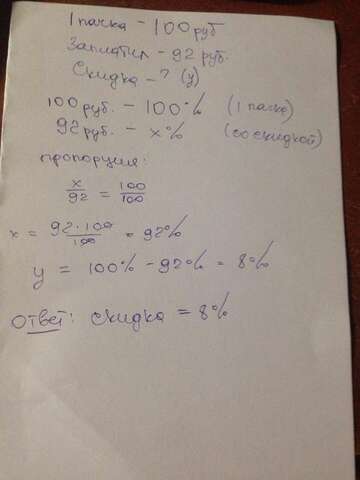 1 пачка - 100 руб
Заплатил - 92 руб.
Скидка - ? (y)
100 руб. - 100% (1 пачка)
92 руб. - x% (со скидкой)
пропорция:
x/92 = 100/100
x = 92·100/100 = 92%
y = 100% - 92% = 8%
Ответ: скидка = 8%